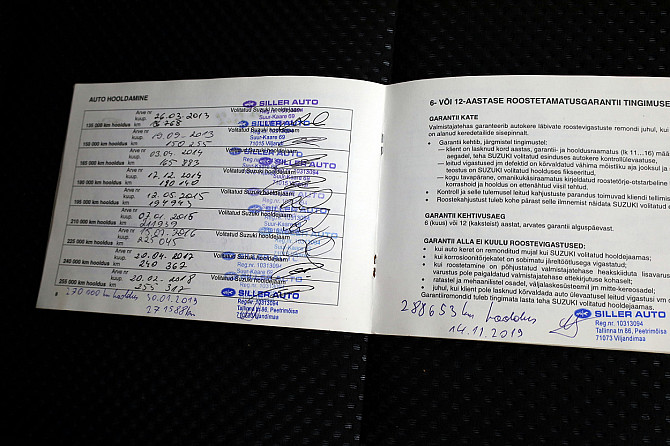 AUTO HOOLDAMINE
SILLER AUTO
Reg nr. 10313094
Suur-Kaare 69
Arve nr
kuup. 26.03.2013
Volitatud Suzuki hooldejaam
135 000 km hooldus km
Arve nr
kuup. 19.09.2013
Volitatud Suzuki hooldejaam
71015 Viljandi
150 000 km hooldus km 150 255
Arve nr
kuup. 03.04.2014
Volitatud Suzuki hooldejaam
165 000 km hooldus km 165 883
Arve nr
kuup. 12.12.2014
Volitatud Suzuki hooldejaam
180 000 km hooldus km 180 140
Arve nr
kuup. 12.05.2015
Volitatud Suzuki hooldejaam
195 000 km hooldus km 194 945
Arve nr
kuup.
Volitatud Suzuki hooldejaam
210 000 km hooldus km
Arve nr
kuup.
Volitatud Suzuki hooldejaam
225 000 km hooldus km 225 045
Arve nr
kuup. 20.04.2017
Volitatud Suzuki hooldejaam
240 000 km hooldus km 240 367
Arve nr
kuup. 20.02.2018
Volitatud Suzuki hooldejaam
255 000 km hooldus km
SILLER AUTO
Reg.nr. 10313094
Tallinna tn 86, Peetrimõisa
71073 Viljandimaa
8
270 000 km hooldus 30.01.2019
271588 km
6- VÕI 12-AASTASE ROOSTETAMATUSGARANTII TINGIMUSE
GARANTII KATE
Valmistajatehas garanteerib autokere läbivate roostevigastuste remondi juhul, ki
on alanud keredetailide sisepinnalt.
• Garantii kehtib, järgmistel tingimustel:
— klient on lasknud kord aastas, garantii- ja hooldusraamatus (lk 11…16) mää
aegadel, teha SUZUKI volitatud esinduses autokere kontrollülevaatuse,
— leitud vigastused jm defektid on kõrvaldatud vähima mõistliku aja jooksul ja s
teostus on SUZUKI volitatud hoolduses fikseeritud,
— kogu tavapärane, omanikukäsiraamatus kirjeldatud roostetõrje-otstarbeline
korrashoid ja hooldus on ettenähtud viisil tehtud.
• Kontroll ja selle tulemusel leitud kahjustuste parandus toimuvad kliendi tellimis
• Roostekahjustust tuleb kohe pärast selle ilmnemist näidata SUZUKI volitatud e
GARANTII KEHTIVUSAEG
6 (kuus) või 12 (kaksteist) aastat, arvates garantii alguspäevast.
GARANTII ALLA EI KUULU ROOSTEVIGASTUSED:
• kui autot keret on remonditud mujal kui SUZUKI volitatud hooldejaamas;
• kui korrosioonitõrjekatet on sobimatu järeltöötlusega vigastatud;
• kui roostetamine on põhjustatud valmistajatehase heakskiiduta lisavarust
varustus pole paigaldatud valmistajatehase ettekirjutuse kohaselt;
• ratastel ja mehaanilistel osadel, väljalaskesüsteemil jm mitte-kereosadel;
• juhul, kui klient pole lasknud kõrvaldada auto ülevaatusel leitud vigastusi vm d
Garantiiremondid tuleb tingimata lasta teha SUZUKI volitatud hooldejaamas.
288653 km hooldus
14.11.2019
SILLER AUTO
Reg nr. 10313094
Tallinna tn 86, Peetrimõisa
71073 Viljandimaa